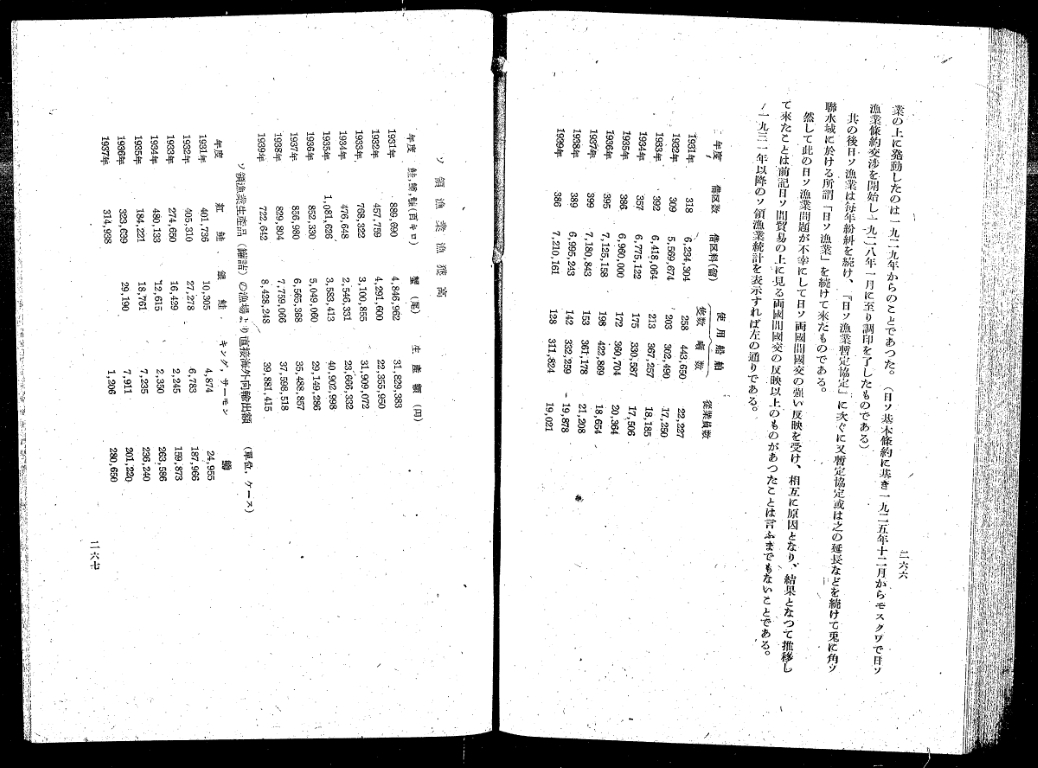 二六六
業の上に発動したのは一九二九年からのことであつた。（日ソ基本條約に基き一九二五年十二月からモスクワで日ソ
漁業條約交渉を開始し一九二八年一月に至り調印を了したものである）
其の後日ソ漁業は毎年紛糾を続け、『日ソ漁業暫定協定』に次ぐに又暫定協定或は之の延長などを続けて兎に角ソ
聯水域に於ける所謂「日ソ漁業」を続けて来たものである。
然して此の日ソ漁業問題が不幸にして日ソ両國間國交の強い反映を受け、相互に原因となり、結果となつて推移し
て来たことは前記日ソ間貿易の上に見る両國間國交の反映以上のものがあつたことは言ふまでもないことである。
一九三一年以降のソ領漁業統計を表示すれば左の通りである。
年度 借区数 借区料(留) 使用船舶 隻数 噸数 従業員数
1931年 318 6,234,304 258 443,650 22,227
1932年 309 5,569,674 203 302,490 17,250
1933年 392 6,418,064 213 367,257 18,185
1934年 357 6,775,122 175 330,587 17,506
1935年 386 6,960,000 172 360,704 20,364
1936年 395 7,125,158 198 422,869 18,654
1937年 399 7,180,843 153 361,178 21,208
1938年 389 6,995,243 142 332,259 19,878
1939年 386 7,210,161 128 311,824 19,021
ソ領漁業漁獲高
年度 鮭鱒(百キロ) 蟹(尾) 生産額(円)
1931年 889,690 4,846,962 31,823,383
1932年 457,759 4,291,600 22,355,950
1933年 768,222 3,100,855 31,909,072
1934年 476,648 2,546,331 23,666,332
1935年 1,081,626 3,583,413 40,902,998
1936年 852,330 5,049,060 29,149,286
1937年 856,980 6,565,368 35,488,857
1938年 829,804 7,759,066 37,598,518
1939年 722,642 8,428,248 39,881,415
ソ領漁業生産品（罐詰）の漁場より直接海外向輸出額 （単位、ケース）
年度 紅鮭 銀鮭 キング、サーモン 鱒
1931年 401,736 10,305 4,874 24,955
1932年 405,310 27,278 6,783 187,966
1933年 274,650 16,429 2,245 159,873
1934年 480,133 12,615 2,350 263,586
1935年 184,221 18,761 7,235 236,240
1936年 323,639 29,190 7,911 201,220
1937年 314,938 1,206 280,650
二六七